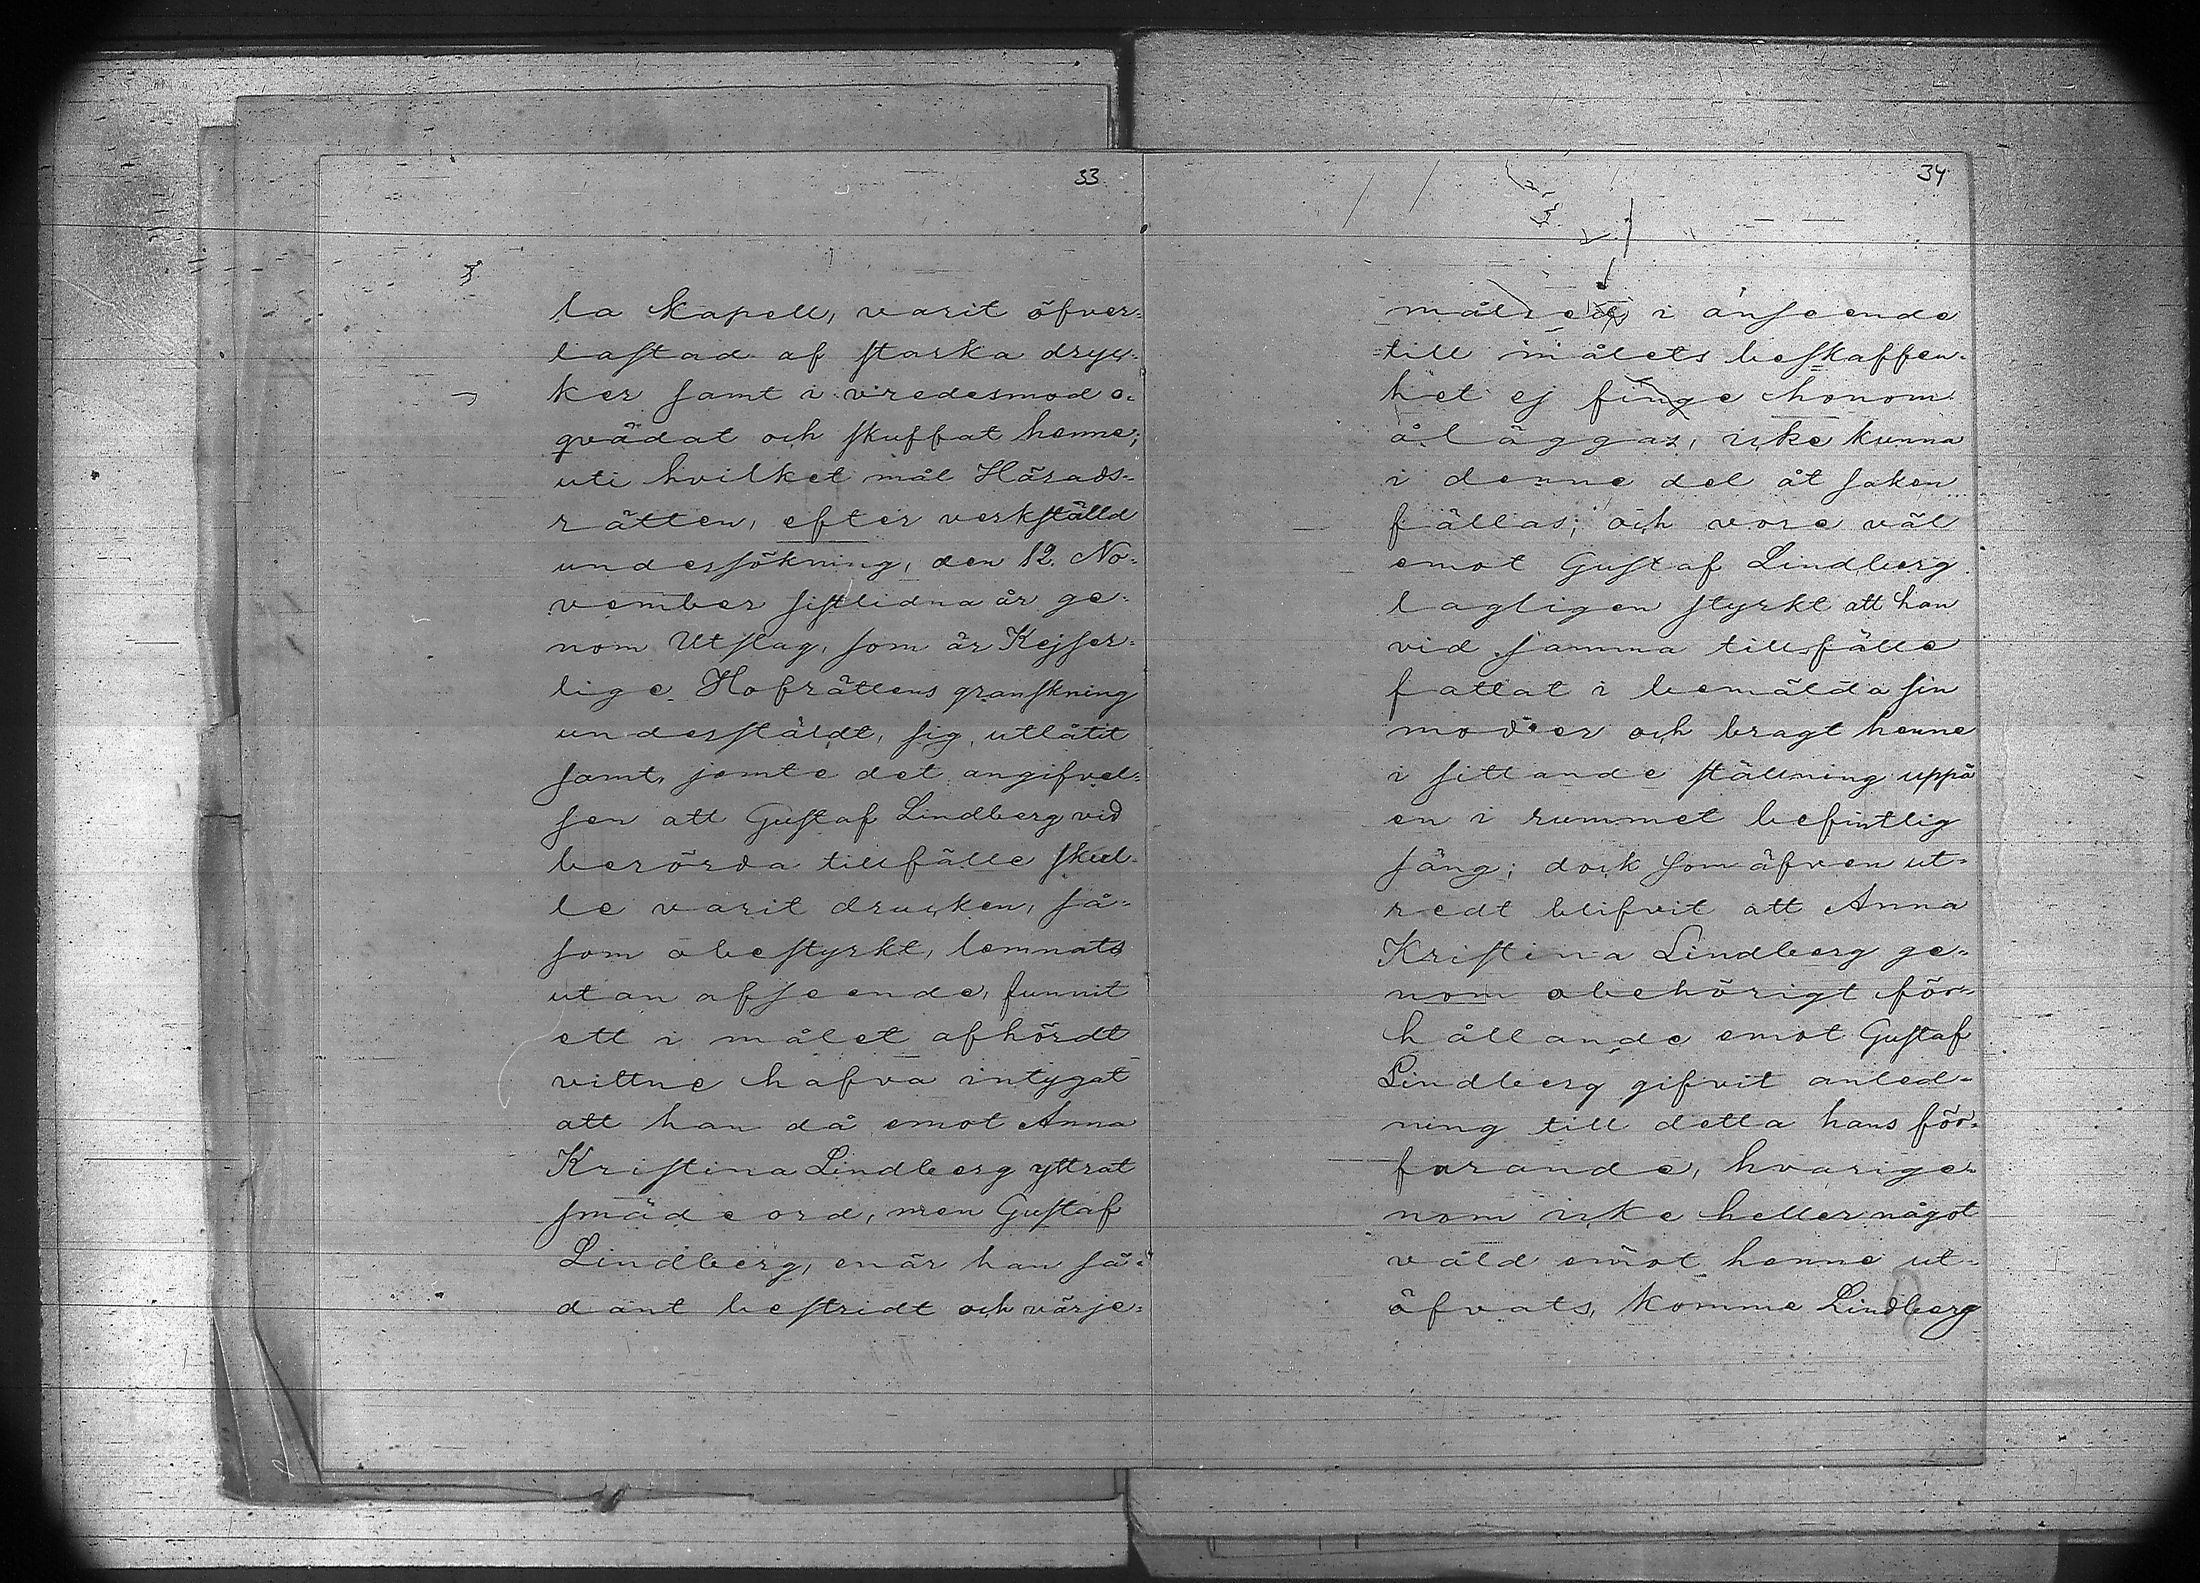 33
la Kapell, varit öfver-
lastad af starka dryc-
ker samt i vredesmod o-
qvädat och skuffat henne;
uti hvilket mål Härads-
rätten, efter verkställd
undersökning, den 12 No-
vember sistlidna år ge-
nom Utslag, som är Kejser-
lige Hofrättens granskning
underställdt, sig utlåtit
samt, jemte det angifvel-
sen att Gustaf Lindberg vid
berörda tillfälle skul-
le varit drucken, så-
som obestyrkt, lemnats
utan afseende, funnit
ett i målet afhördt
vittne hafva intygat
att han då emot Anna
Kristina Lindberg yttrat
smädeord, men Gustaf
Lindberg, enär han så-
dant bestridt och värje-
34
målsed i anseende
till målets beskaffen-
het ej finge honom
åläggas, icke kunna
i denne del åt saken
fällas; och vore väl
emot Gustaf Lindberg
lagligen styrkt att han
vid samma tillfälle
fattat i bemälda sin
moder och bragt henne
i sittande ställning uppå
en i rummet befintlig
säng; dock som äfven ut-
redt blifvit att Anna
Kristina Lindberg ge-
nom obehörigt för-
hållande emot Gustaf
Lindberg gifvit anled-
ning till detta hans för-
farande, hvarige-
nom icke heller något
våld emot henne ut-
öfvats, komme Lindberg